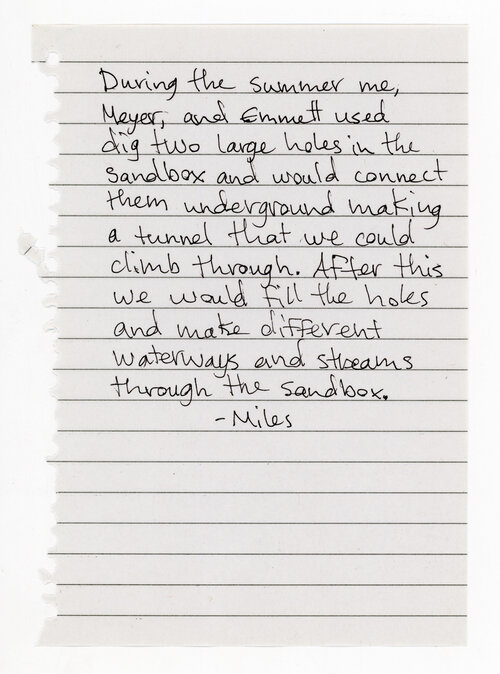 During the summer me,
Meyer, and Emmett used
dig two large holes in the
sandbox and would connect
them underground making
a tunnel that we could
climb through. After this
we would fill the holes
and make different
waterways and streams
through the sandbox.
- Miles